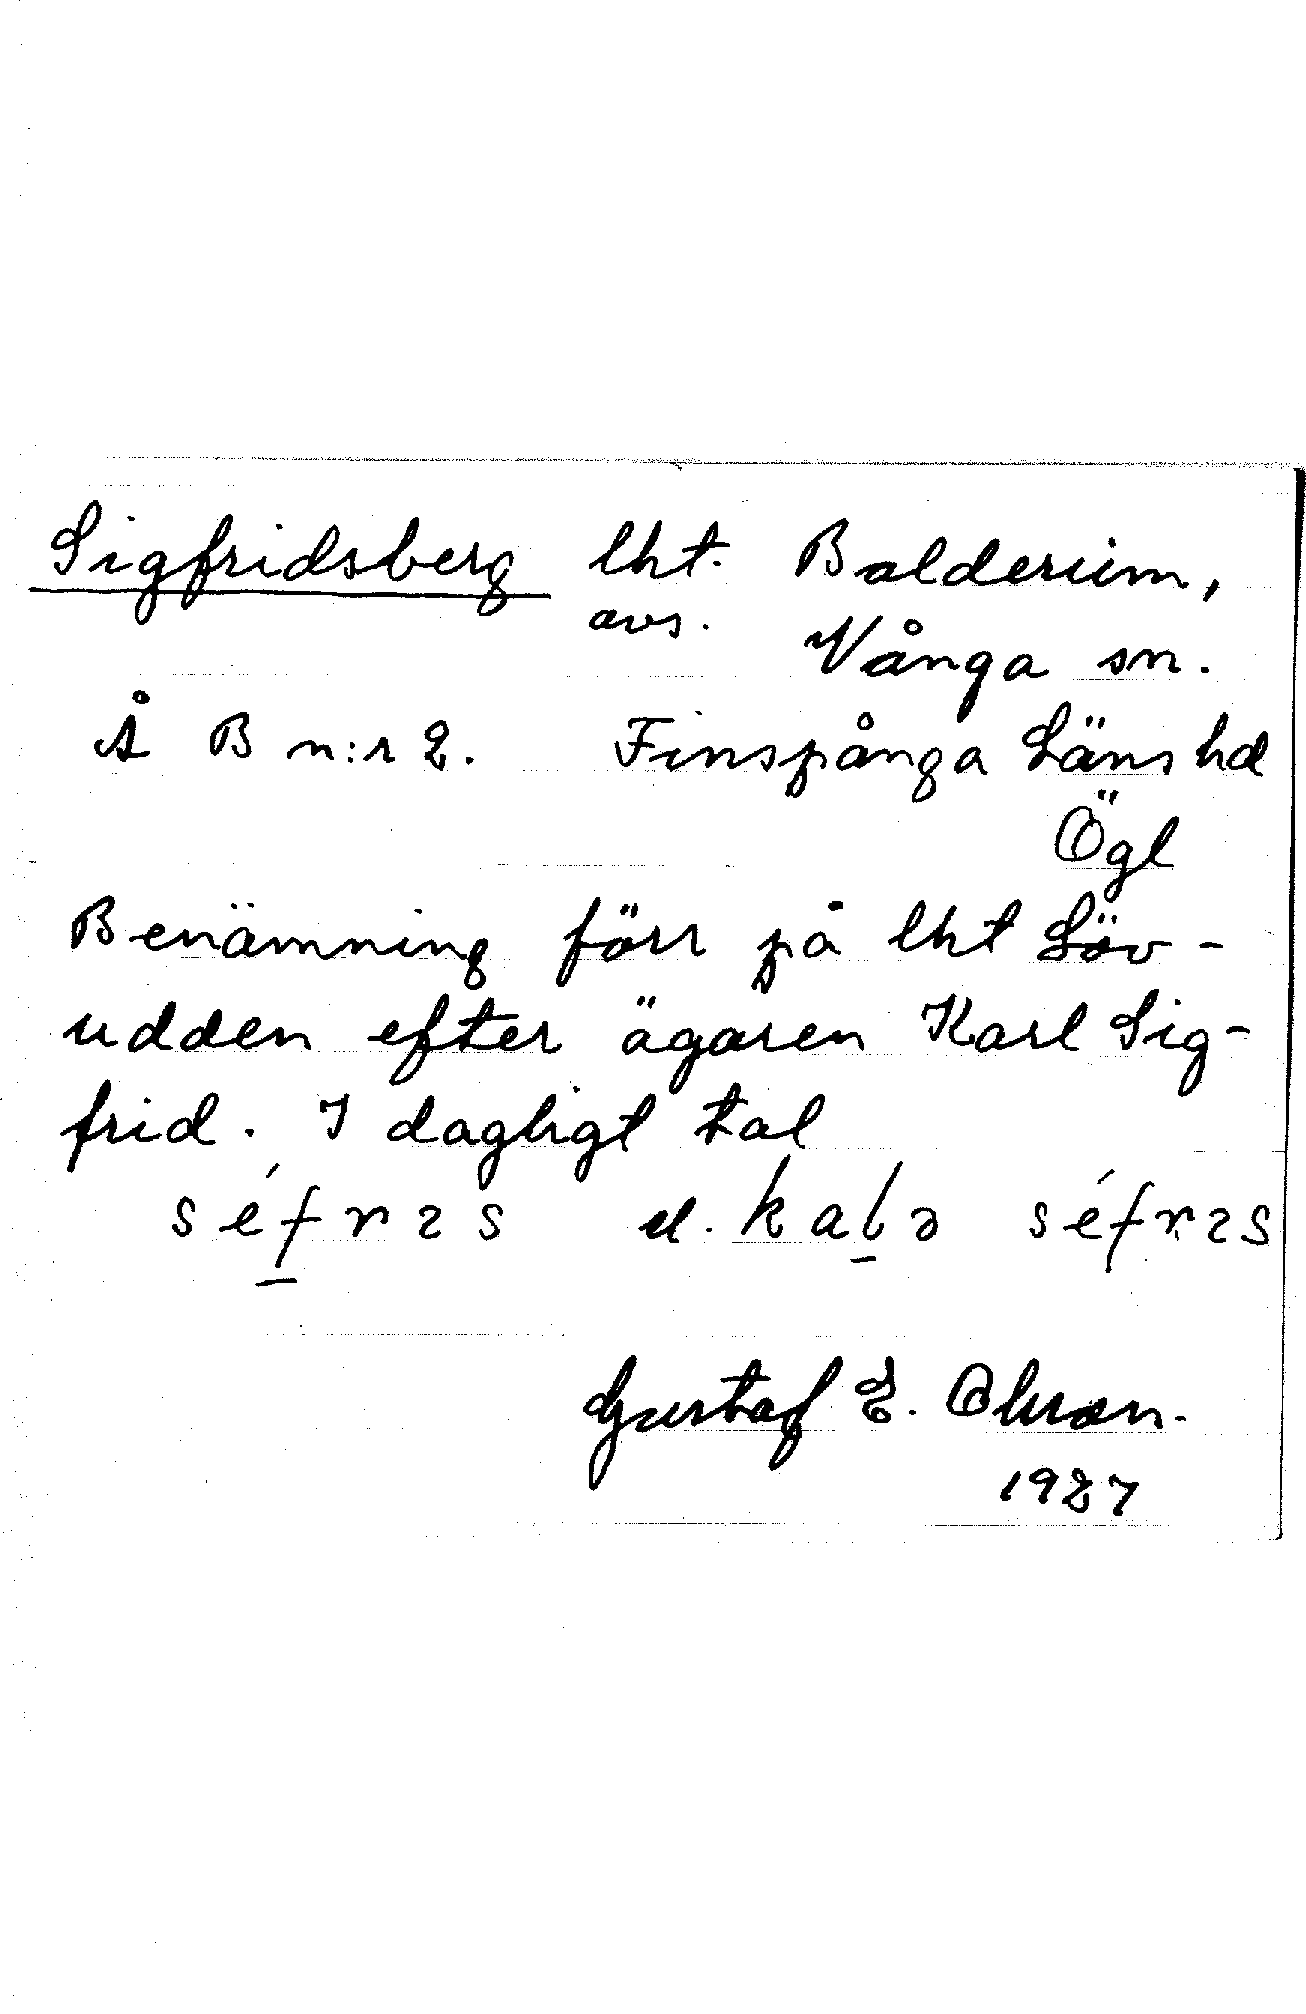 Sigfridsberg lht. Balderum,
avs. Vånga sn.
Å B n:r 2. Finspånga Läns hd
Ögl
Benämning förr på lht Löv-
udden efter ägaren Karl Sig-
frid. I dagligt tal
séfrɿs el. kalɘ séfrɿs
Gustaf E. Olsson.
1927